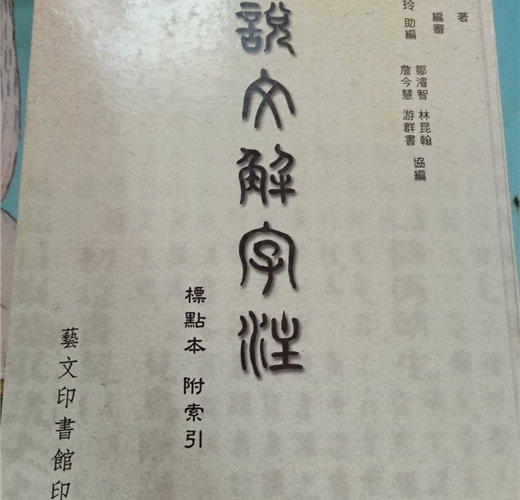 著
編審
玲 助編
鄒濬智 林昆翰
詹今慧 游群書 協編
說文解字注
標點本 附索引
藝文印書館印